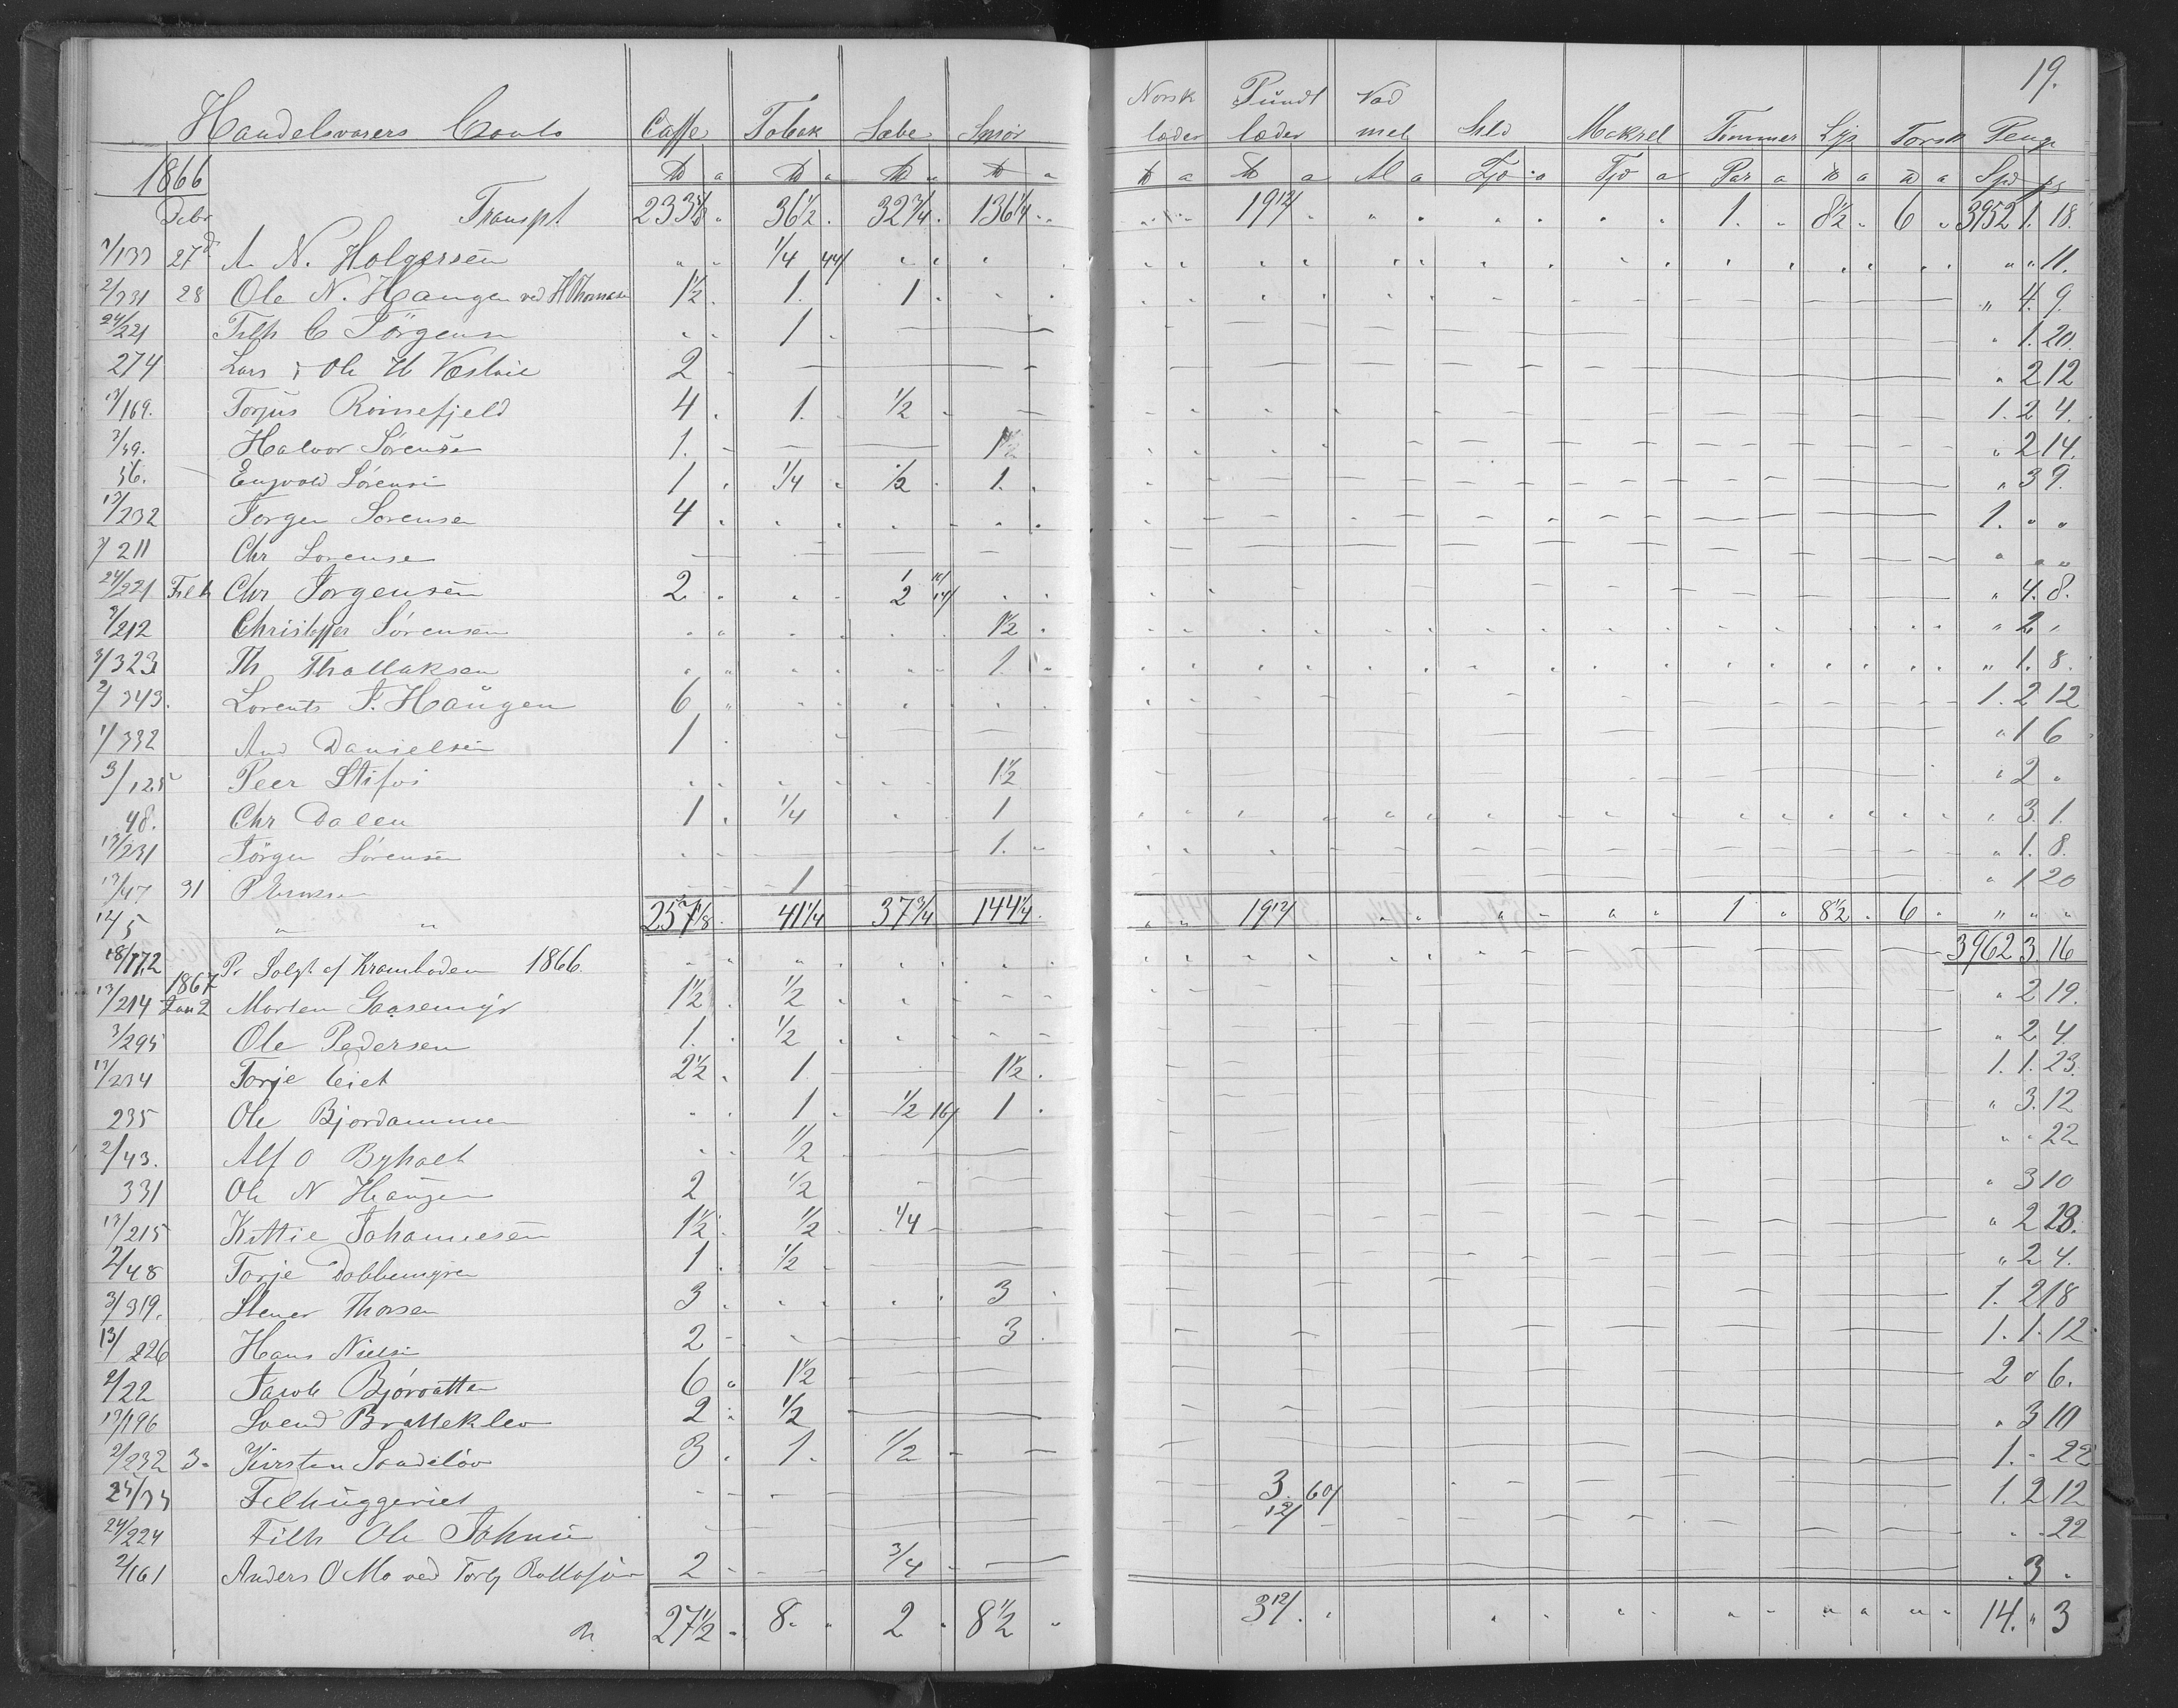 19.
Handelsvarers Conto Caffe Tobak Sæbe Smør Norsk læder Pundt læder Vad mel Sild Makrel Tømmer Lys Torsk Penge
1866 ℔ a ℔ a ℔ a ℔ a ℔ a ℔ a Al a Tjd a Tjd a Par a ℔ a ℔ a Spd
Debr Transpt 36 1/2 32 3/4 136 1/4 19 12/ 1. 8 1/2 6 3952 1. 18.
27 A. N. Holgersen 1/4 44/ 11.
2/331 28 Ole N. Haugen ved HThomasen 1 1/2 1. 1 4. 9.
24/221 Filh C Jörgensen 1 1. 20.
274 Lars & Ole H 2 2 12
13/169. Torjus Roinefjeld 4 1. 1/2 1. 2 4.
3/59. Halvor Sörensen 1. 1 1/2 2 14.
56. Engvald Sörensen 1 1/4 1/2 1. 3 9.
13/232 Jorgen Sorensen 4 1.
3/211 Chr Sorensen
24/221 Filh Chr Jorgensen 2 4. 8.
3/212 Christoffer Sörensen 1 1/2 2
3/323 Th Thallaksen 1. 1. 8.
2/343. Lorents J. Haugen 6 1. 2 12
1/332 And Danielsen 1 1 6
3/125 Peer 1 1/2 2
48. Chr Dalen 1 1/4 1 3. 1.
13/231 Jörgen Sörensen 1. 1. 8.
13/47 31 P 1 1 20
12/5 " " 257 1/8 41 1/4 37 3/4 144 1/4 19 12/ 1 8 1/2 6
18/172 Pr Solgt af Kramboden 1866 3962 3. 16
1867
13/214 Jan 2 Morten Gaasemyr 1 1/2 1/2 2 19.
3/295 Ole Pedersen 1. 1/2 2 4.
13/234 Torje Eiet 2 1/2 1 1 1/2 1. 1. 23.
235 Ole Bjordammen 1 1/2 16/ 1 3. 12
2/43. Alf O Byholt 1/2 22
331 Ole N Haugen 2 1/2 3 10
13/215 Kittie Johannesen 1 1/2 1/2 1/4 2 23.
2/48 Torje Dobbemyren 1 1/2 2 4.
3/319. Stener Thorsen 3 3 1. 2 18
13/226 Hans Nielsen 2 3 1. 1. 12
2/22 Jacob Bjørvatten 6 1 1/2 2 " 6.
13/196 Svend Bratteklev 2 1/2 3 10
2/232 3. Kirsten Sandeløv 3 1. 1/2 1. - 22
24/33 Filhuggeriet 3 60/ 1. 2 12
24/224 Filh Ole Johnsen 12/ 22
2/161 Anders O Mo ved Torbj 2 3/4 3
27 1/2 8. 2 8 1/2 3 12/ 14. " 3